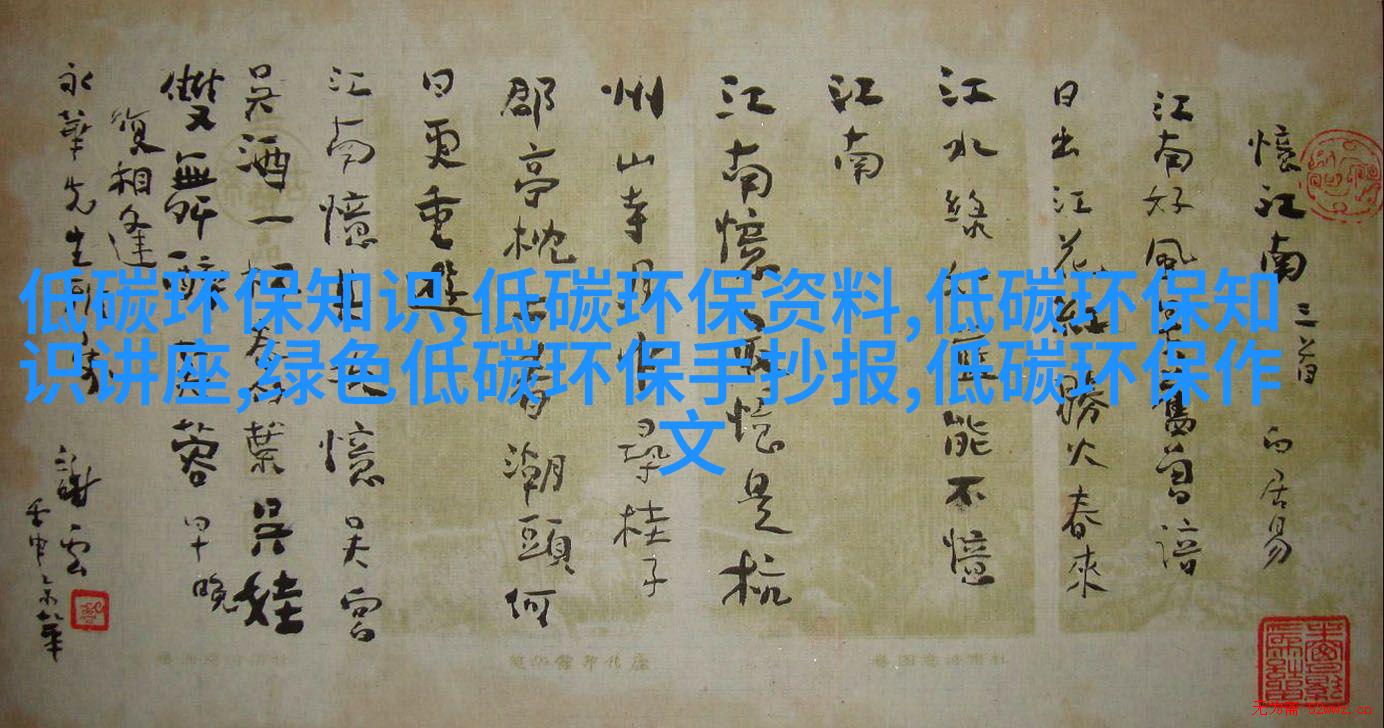 低碳环保知识,低碳环保资料,低碳环保知
识讲座,绿色低碳环保手抄报,低碳环保作
文
憶江南 三首 白居易
江南好風景舊曾諳
日出江花紅勝火春來
江水綠如藍能不憶
江南
江南憶最憶是杭
州山寺月中尋桂子
郡亭枕上看潮頭何
日更重遊
江南憶其次憶吳宮
吳酒一杯春竹葉吳娃
雙舞醉芙蓉早晚
復相逢
永華先生
謝雲
壬申京華
无为斋